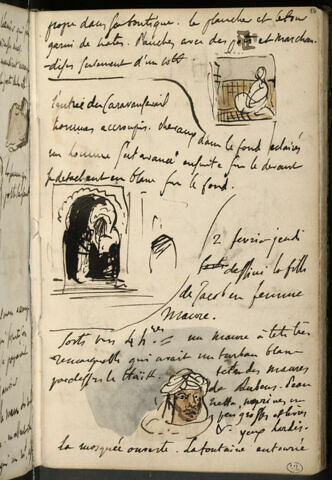 propre dans la boutique. le plancher et le tour
garni de nates. Planches avec des et Marchan-
dises seulement d'un coté
l'entrée du Caravanserail
hommes accroupis. dans le fond éclairés
un homme s'est avancé ensuite sur le devant
se detachant en blanc sur le fond.
2 fevrier jeudi
dessiné la fille
de Jacob en femme
Maure.
Sorti vers 4 h res = un maure à tête très
remarquable qui avait un turban blanc
pardessus le Haïjk
tête des maures
de Rubens. Peau
narines un
peu grosses et lèvres
yeux hardis.
la mosquée ouverte. la fontaine entourée